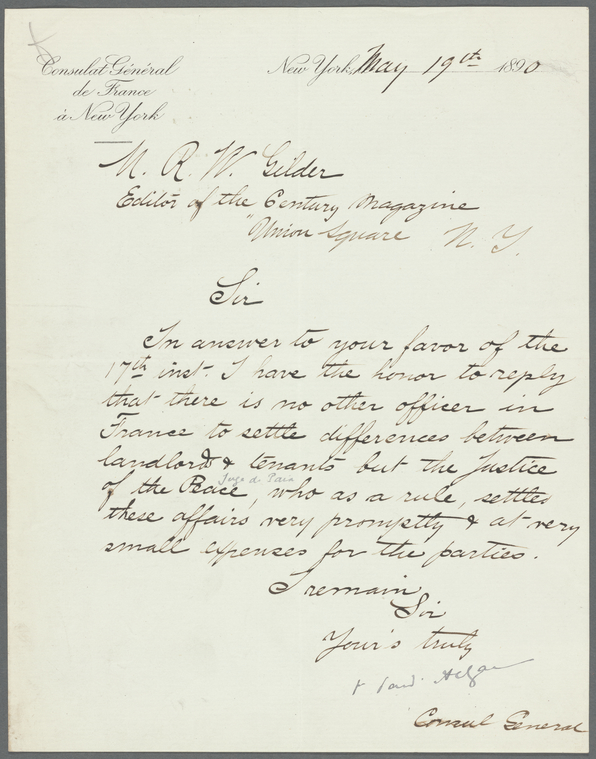 Consulat Général
de France
à New York
New York, May 19th 1890
M. R. W. Gilder
Editor of the Century Magazine
Union Square N. Y.
Sir
In answer to your favor of the
17th inst. I have the honor to reply
that there is no other officer in
France to settle differences between
landlord & tenants but the Justice
Juge de Paix
of the Peace, who as a rule, settles
these affairs very promptly & at very
small expenses for the parties.
I remain
Sir
Your's truly
Consul General